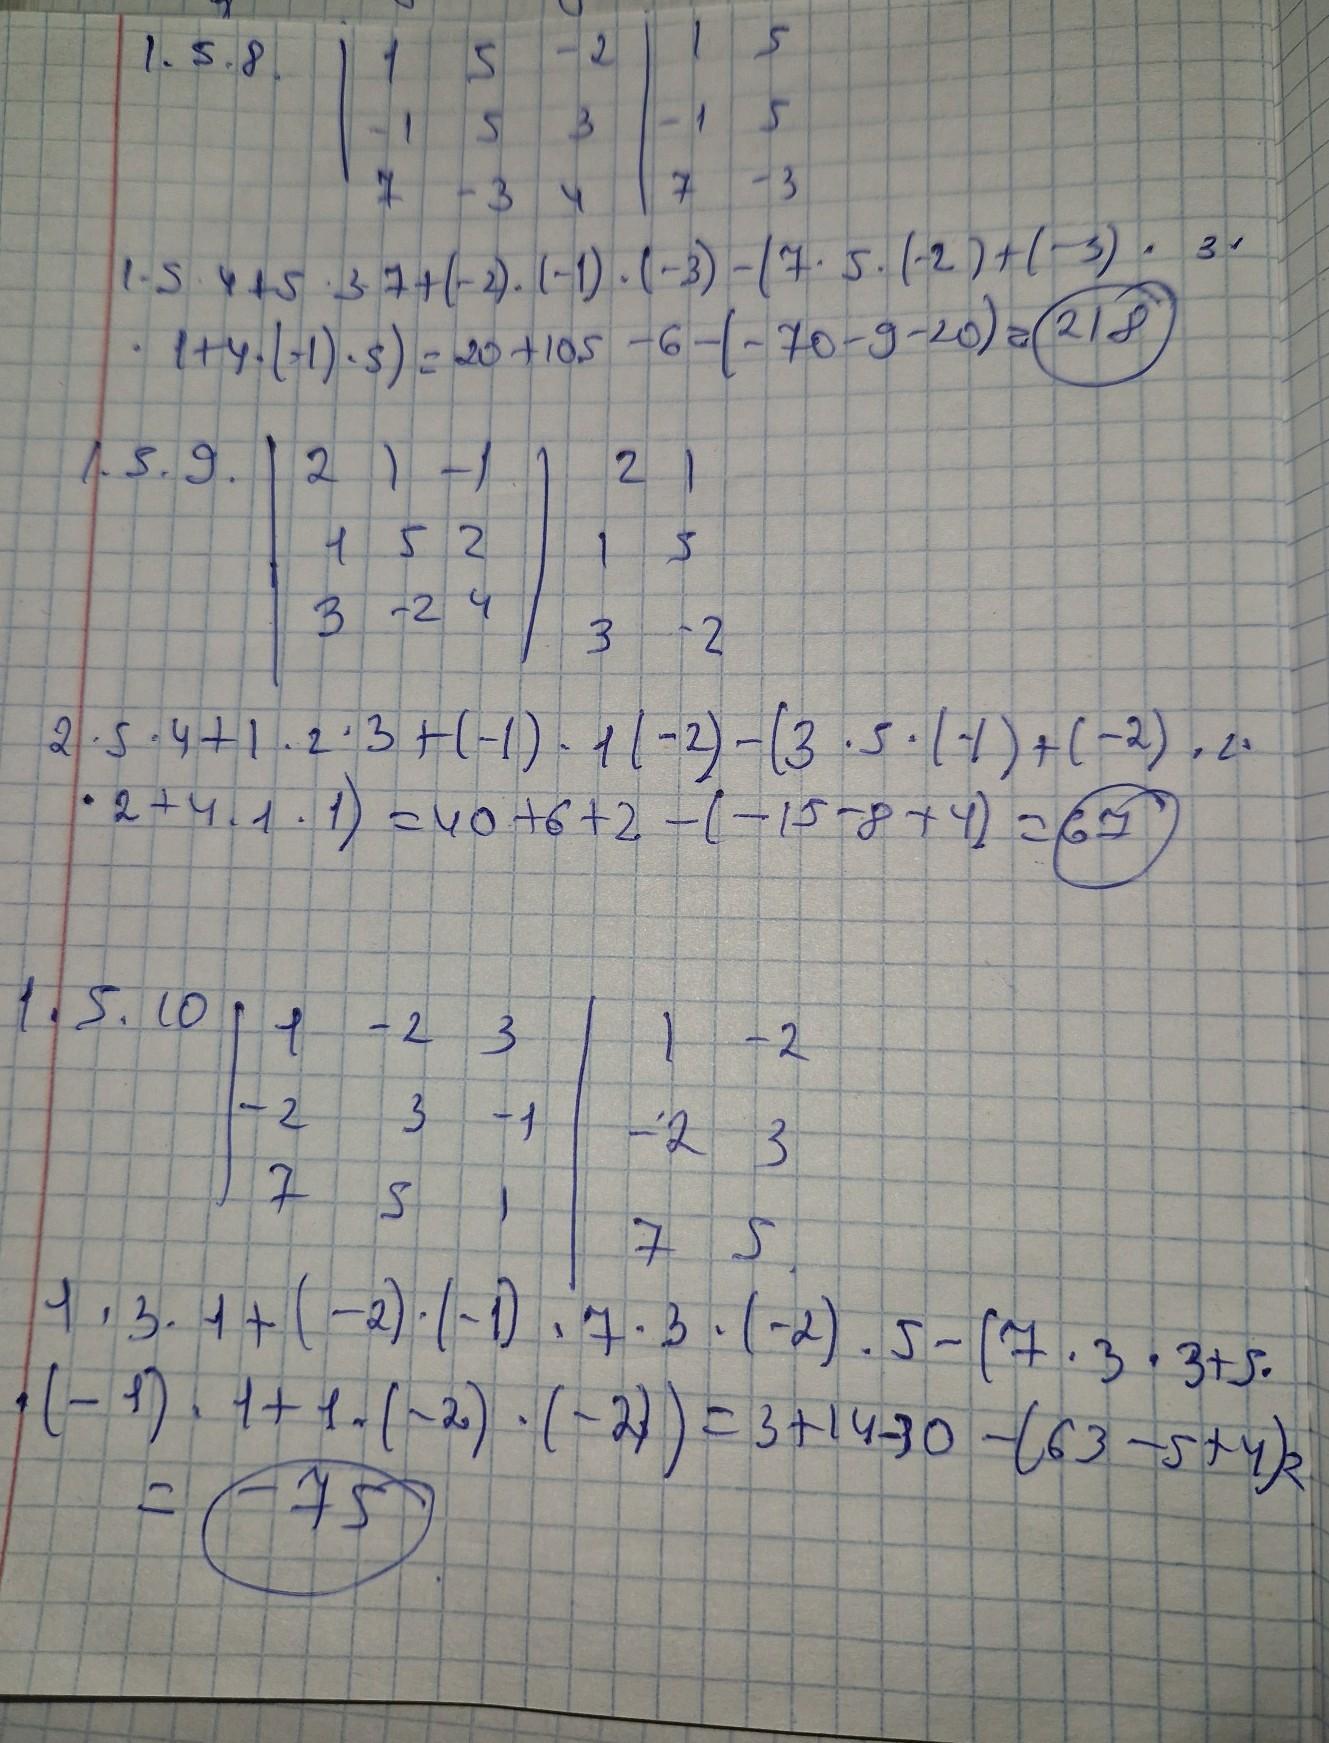 1.5.8. | 1 5 -2 | 1 5
-1 5 3 | -1 5
7 -3 4 | 7 -3
1·5·4+5·3·7+(-2)·(-1)·(-3)-(7·5·(-2)+(-3)·3·
·1+4·(-1)·5)=20+105-6-(-70-9-20)=218
1.5.9. | 2 1 -1 | 2 1
1 5 2 | 1 5
3 -2 4 | 3 -2
2·5·4+1·2·3+(-1)·1(-2)-(3·5·(-1)+(-2)·2·
·2+4·1·1)=40+6+2-(-15-8+4)=67
1.5.10 | 1 -2 3 | 1 -2
-2 3 -1 | -2 3
7 5 1 | 7 5
1·3·1+(-2)·(-1)·7·3·(-2)·5-(7·3·3+5·
·(-1)·1+1·(-2)·(-2))=3+14-30-(63-5+4)=
= -75